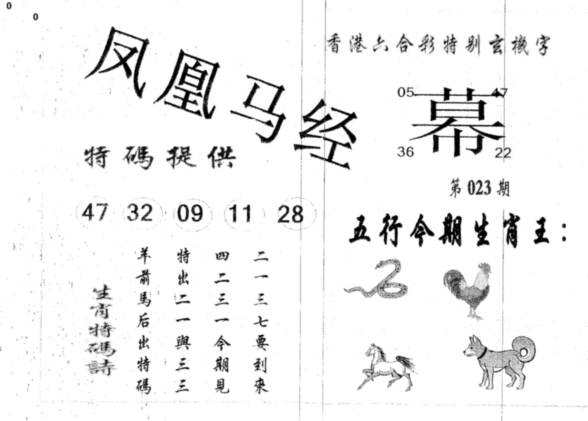 0
0
凤凰马经
香港六合彩特别玄機字
05 47
幕
36 22
特碼提供
第023期
47 32 09 11 28
五行今期生肖王：
二一三七要到來
四二三一今期見
特出二一與三三
羊前馬后出特碼
生肖特碼詩